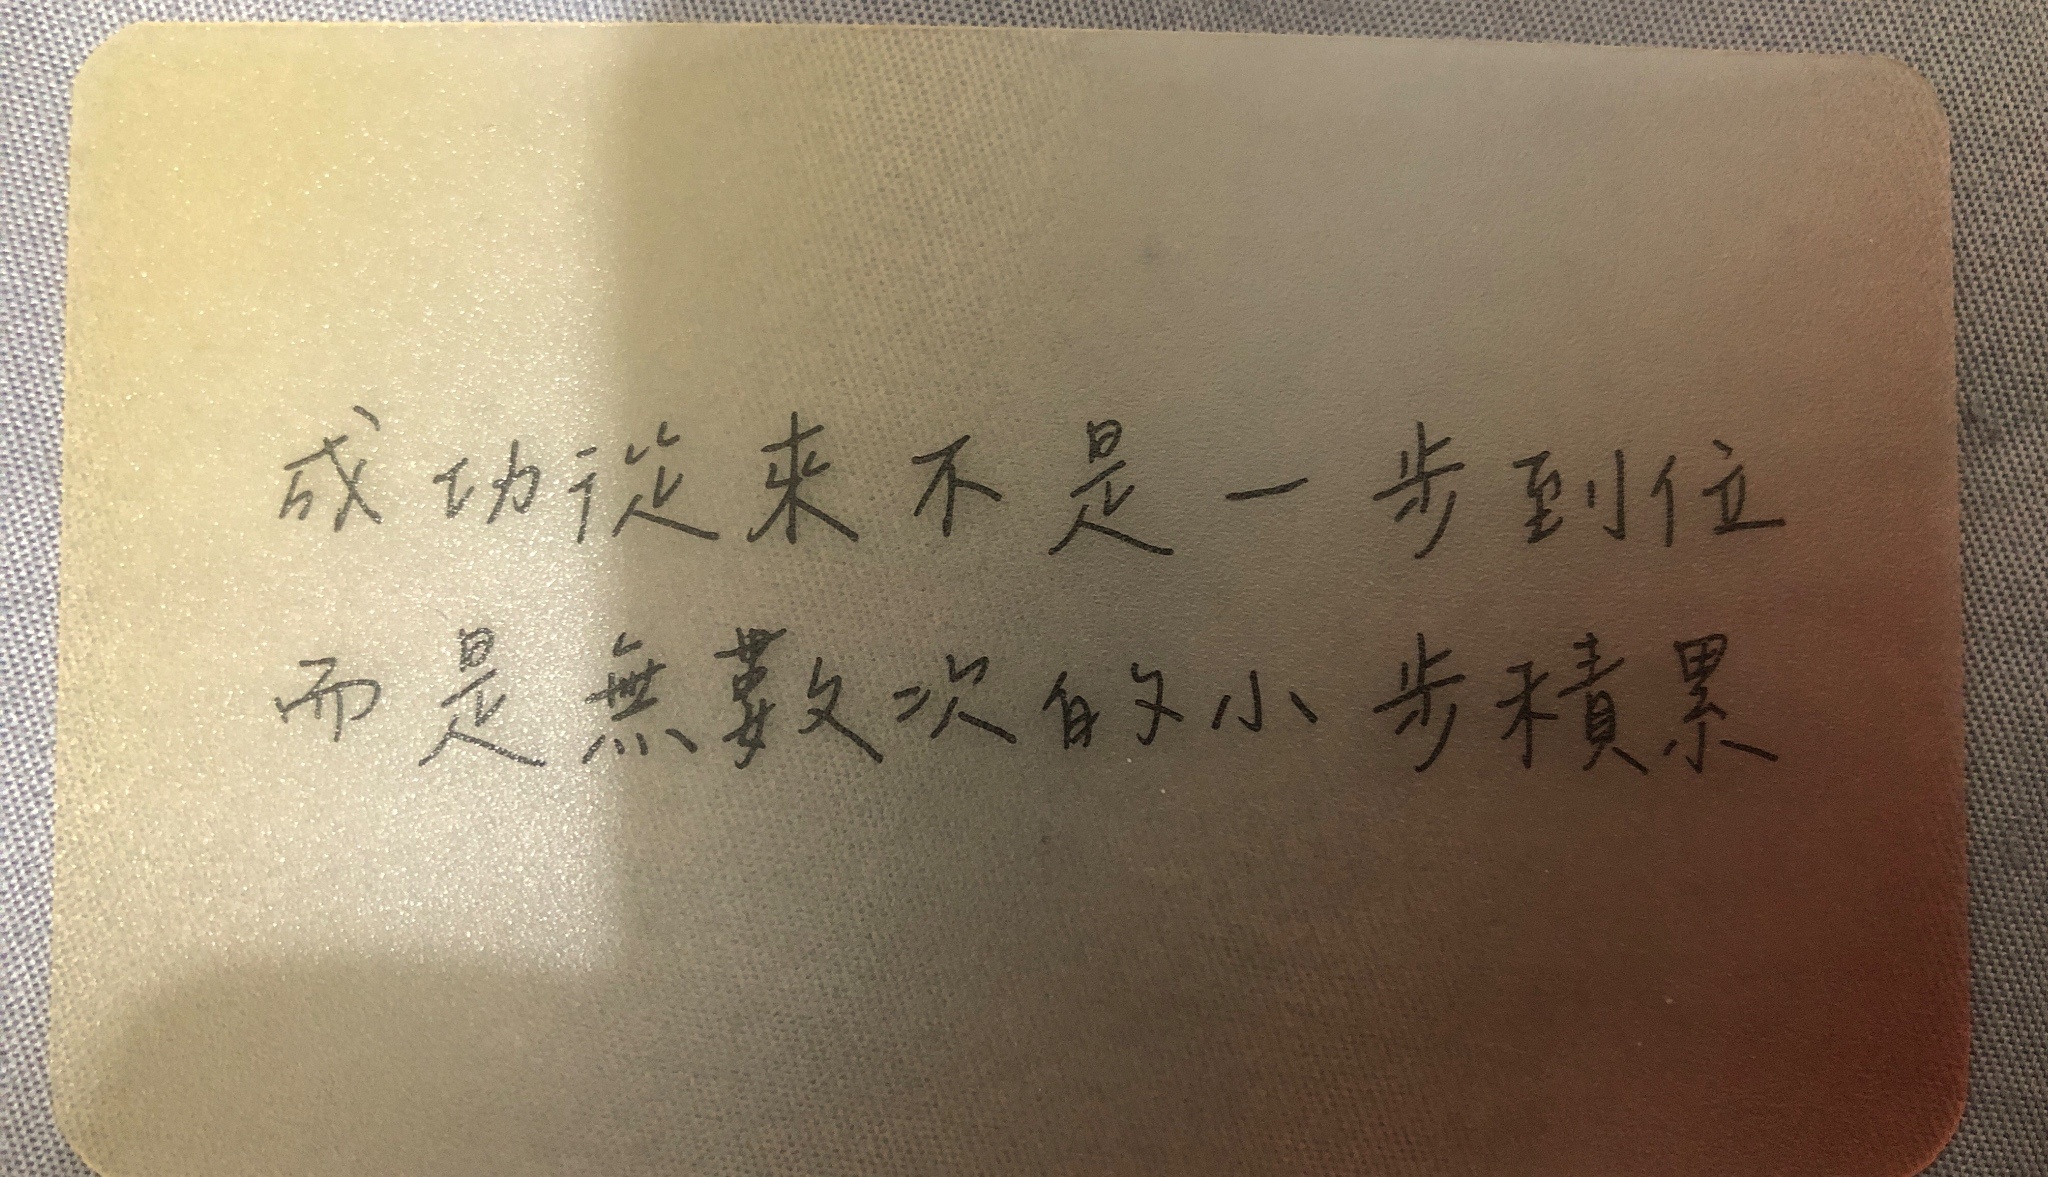 成功從來不是一步到位
而是無數次的小步積累